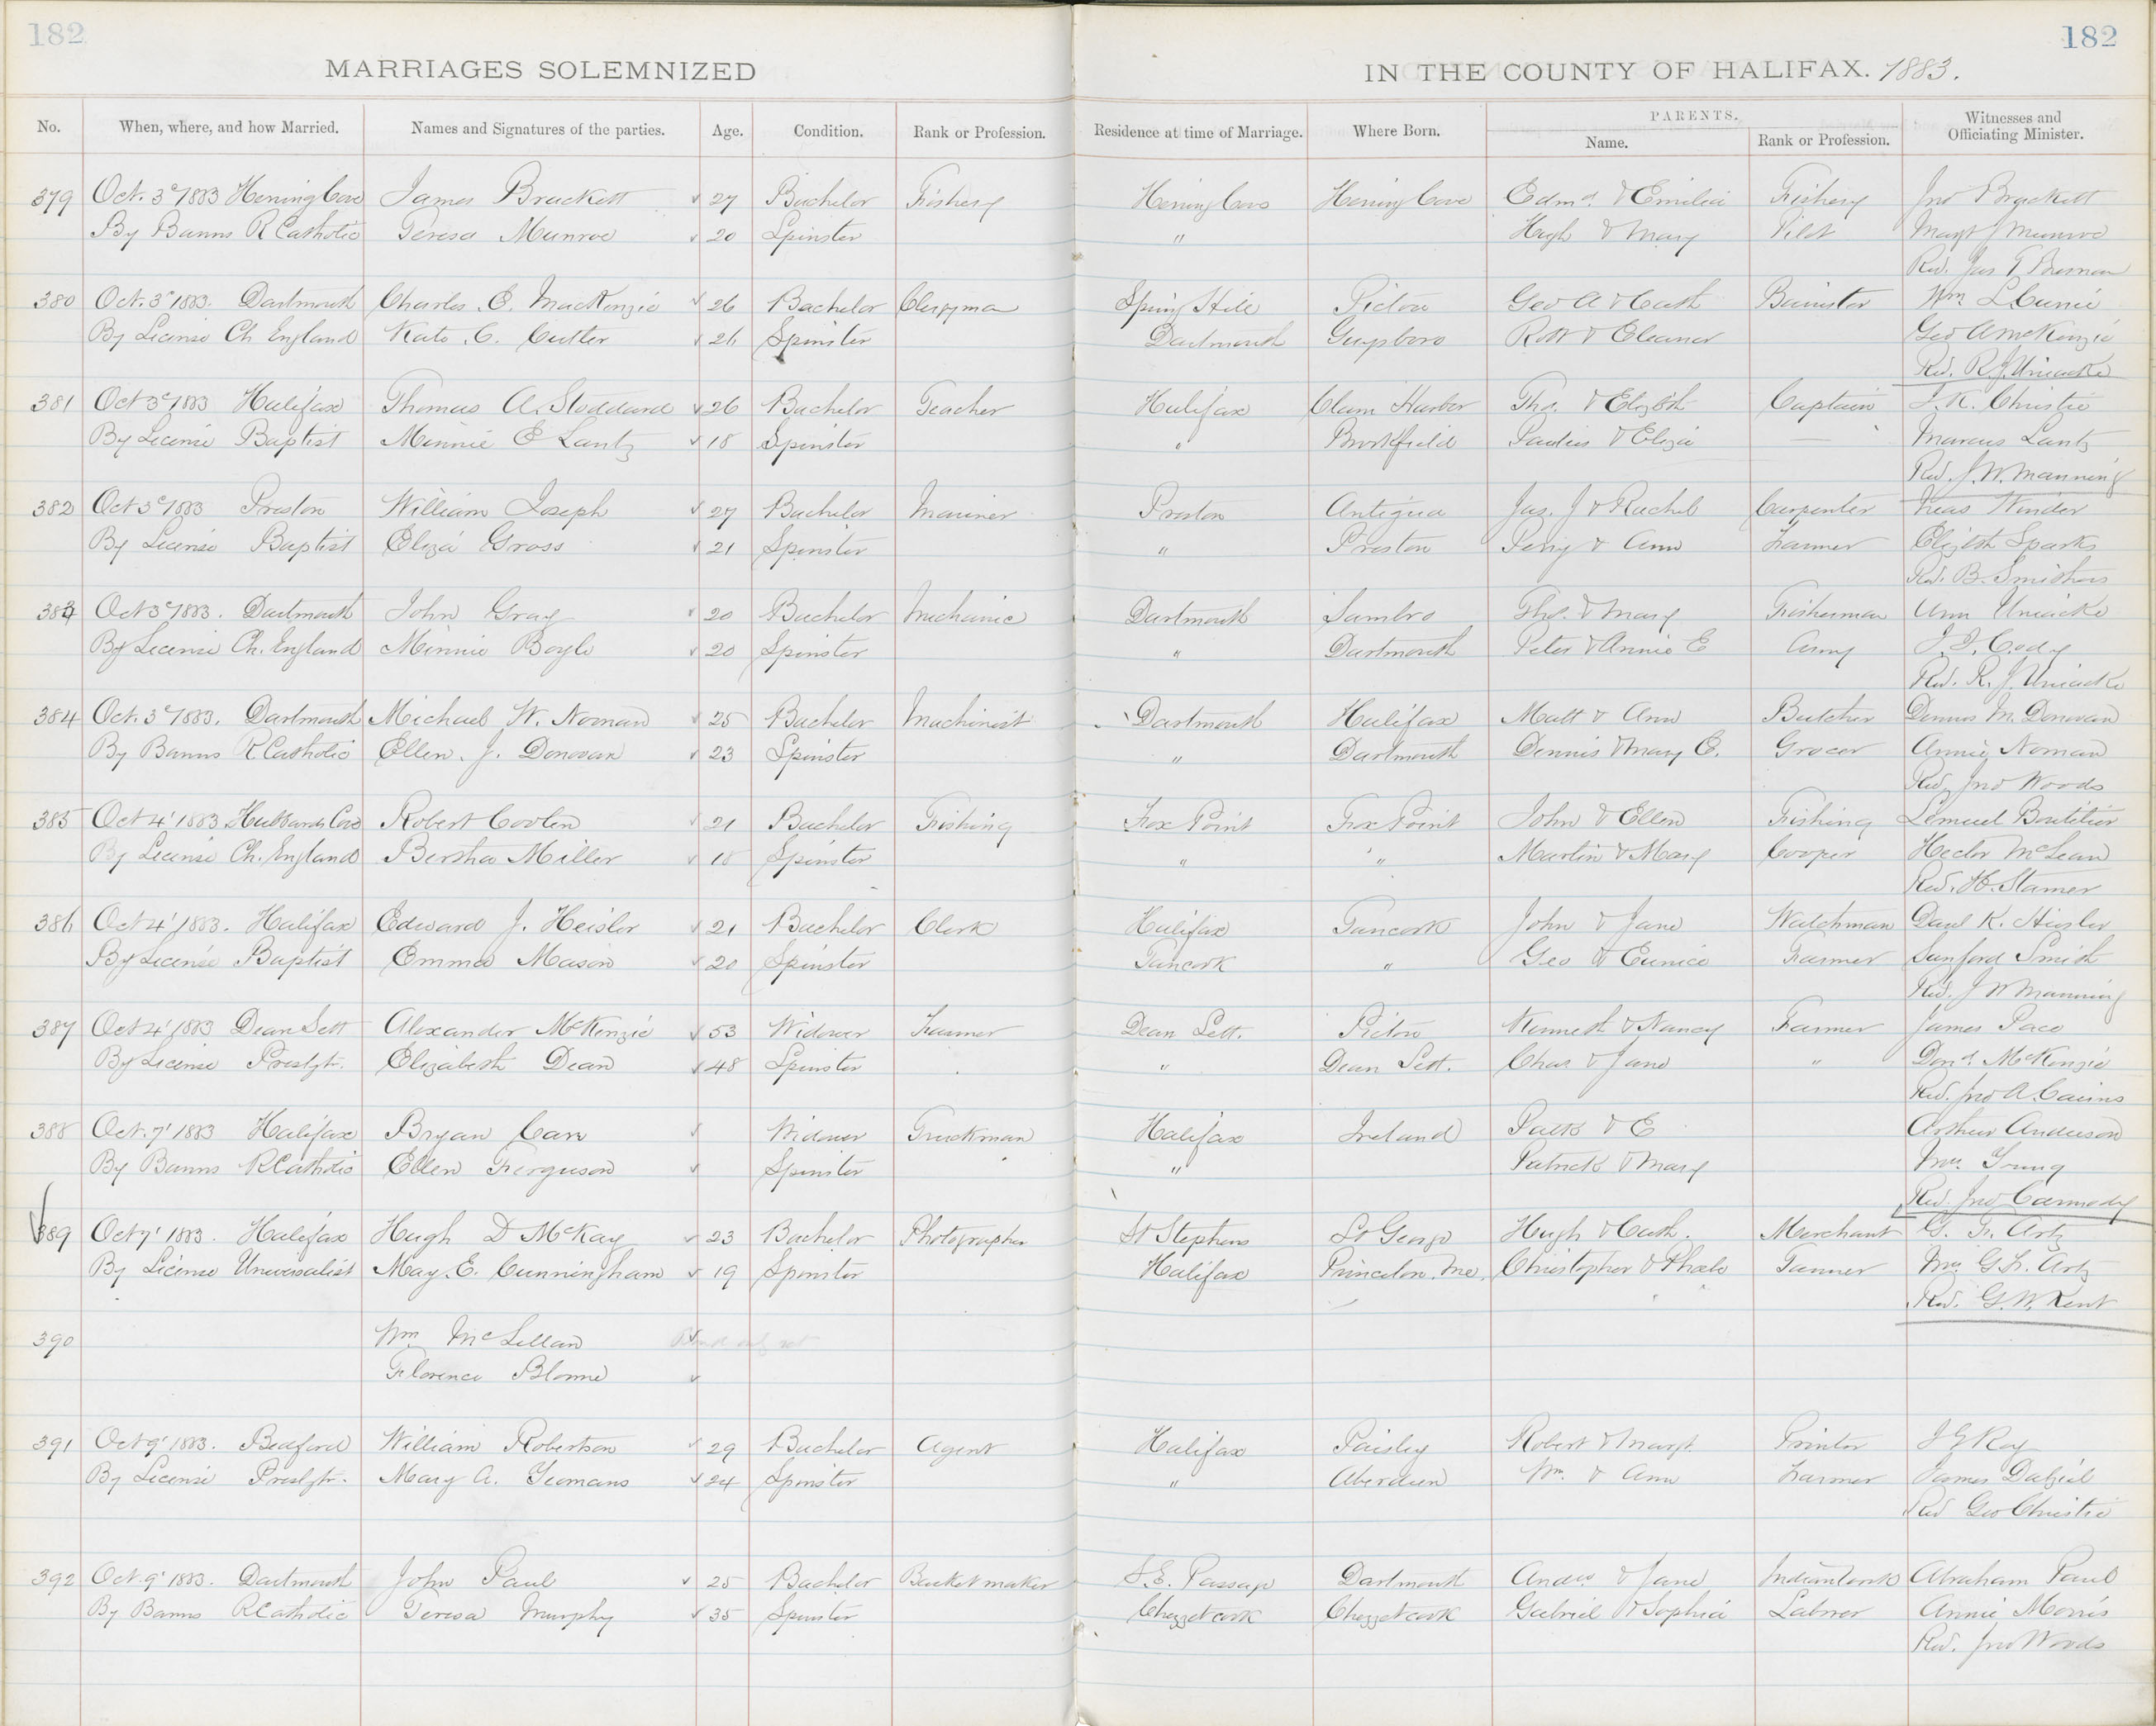 182
182
MARRIAGES SOLEMNIZED IN THE COUNTY OF HALIFAX. 1883.
No. When, where, and how Married. Names and Signatures of the parties. Age. Condition. Rank or Profession. Residence at time of Marriage. Where Born. PARENTS. Name. Rank or Profession. Witnesses and Officiating Minister.
379 Oct. 3d 1883 Herring Cove James Brackett 27 Bachelor Fishery Herring Cove Herring Cove Edmd. & Emilia Fishery Jno Brackett
By Banns R Catholic Teresa Munroe 20 Spinster " Hugh & Mary Pilot Margt J Munroe
Rev. Jas
380 Oct. 3d 1883. Dartmouth Charles E. MacKenzie 26 Bachelor Clergyman Spring Hill Pictou Geo A & Cath Barrister Wm
By License Ch England Kate C. Cutler 26 Spinster Dartmouth Guysboro Robt & Eleanor Geo A McKenzie
Rev. R. J. Uniacke
381 Oct 3d 1883 Halifax Thomas A. Stoddard 26 Bachelor Teacher Halifax Clam Harbor Thos. & Elizbth Captain J. K. Christie
By License Baptist Minnie E Lantz 18 Spinster " Brookfield & Eliza — Marcus Lantz
Rev. J. W. Manning
382 Oct 3d 1883 Preston William Joseph 27 Bachelor Mariner Preston Antigua Jas. J & Rachel Carpenter Winder
By License Baptist Eliza Gross 21 Spinster " Preston Perry & Ann Farmer Elizbth Sparks
Rev. B. Smithers
383 Oct 3d 1883. Dartmouth John Gray 20 Bachelor Mechanic Dartmouth Sambro Thos. & Mary Fisherman Ann Uniacke
By License Ch. England Minnie Boyle 20 Spinster " Dartmouth Peter & Annie E Army
Rev. R. J. Uniacke
384 Oct. 3d 1883. Dartmouth Michael W. Noonan 25 Bachelor Machinist Dartmouth Halifax Matt & Ann Butcher Dennis M. Donovan
By Banns R Catholic Ellen J. Donovan 23 Spinster " Dartmouth Dennis & Mary E. Grocer Annie Noonan
Rev. Jno Woods
385 Oct 4' 1883 Hubbards Cove Robert Coolen 21 Bachelor Fishing Fox Point Fox Point John & Ellen Fishing Lemuel Boutilier
By License Ch. England Bertha Miller 18 Spinster " " Martin & Mary Cooper Hector McLean
Rev. H. Stamer
386 Oct 4' 1883. Halifax Edward J. Heisler 21 Bachelor Clerk Halifax Tancook John & Jane Watchman K. Hiesler
By License Baptist Emma Mason 20 Spinster Tancook " Geo & Eunice Farmer Sanford Smith
Rev. J W Manning
387 Oct 4' 1883 Dean Sett Alexander McKenzie 53 Widower Farmer Dean Sett. Pictou Kenneth & Nancy Farmer James Pace
By License Presbyt. Elizabeth Dean 48 Spinster " Dean Sett. Chas & Jane " Dond. McKenzie
Rev. Jno A. Cairns
388 Oct. 7' 1883 Halifax Bryan Carr Widower Truckman Halifax Ireland Patk & E Arthur Anderson
By Banns R Catholic Ellen Ferguson Spinster " Patrick & Mary Mrs. Young
Rev. Jno Carmody
389 Oct 7' 1883. Halifax Hugh D McKay 23 Bachelor Photographer St Stephens St George Hugh & Cath. Merchant G. F. Artz
By License Universalist May. E. Cunningham 19 Spinster Halifax Princeton. Me. Christopher & Phoebe Tanner Mrs G. F. Artz
Rev. G. W. Kent
390 Wm McLellan
Florence Blonne
391 Oct 9' 1883. Bedford William Robertson 29 Bachelor Agent Halifax Paisley Robert & Margt. Printer
By License Presbyt. Mary A. Yeomans 24 Spinster " Aberdeen Wm. & Ann Farmer James Dalziel
Rev Geo Christie
392 Oct. 9' 1883. Dartmouth John Paul 25 Bachelor Basket maker S. E. Passage Dartmouth Andw & Jane Abraham Paul
By Banns R Catholic Teresa Murphy 35 Spinster Chezzetcook Chezzetcook Gabriel & Sophia Laborer Annie Morris
Rev. Jno Woods